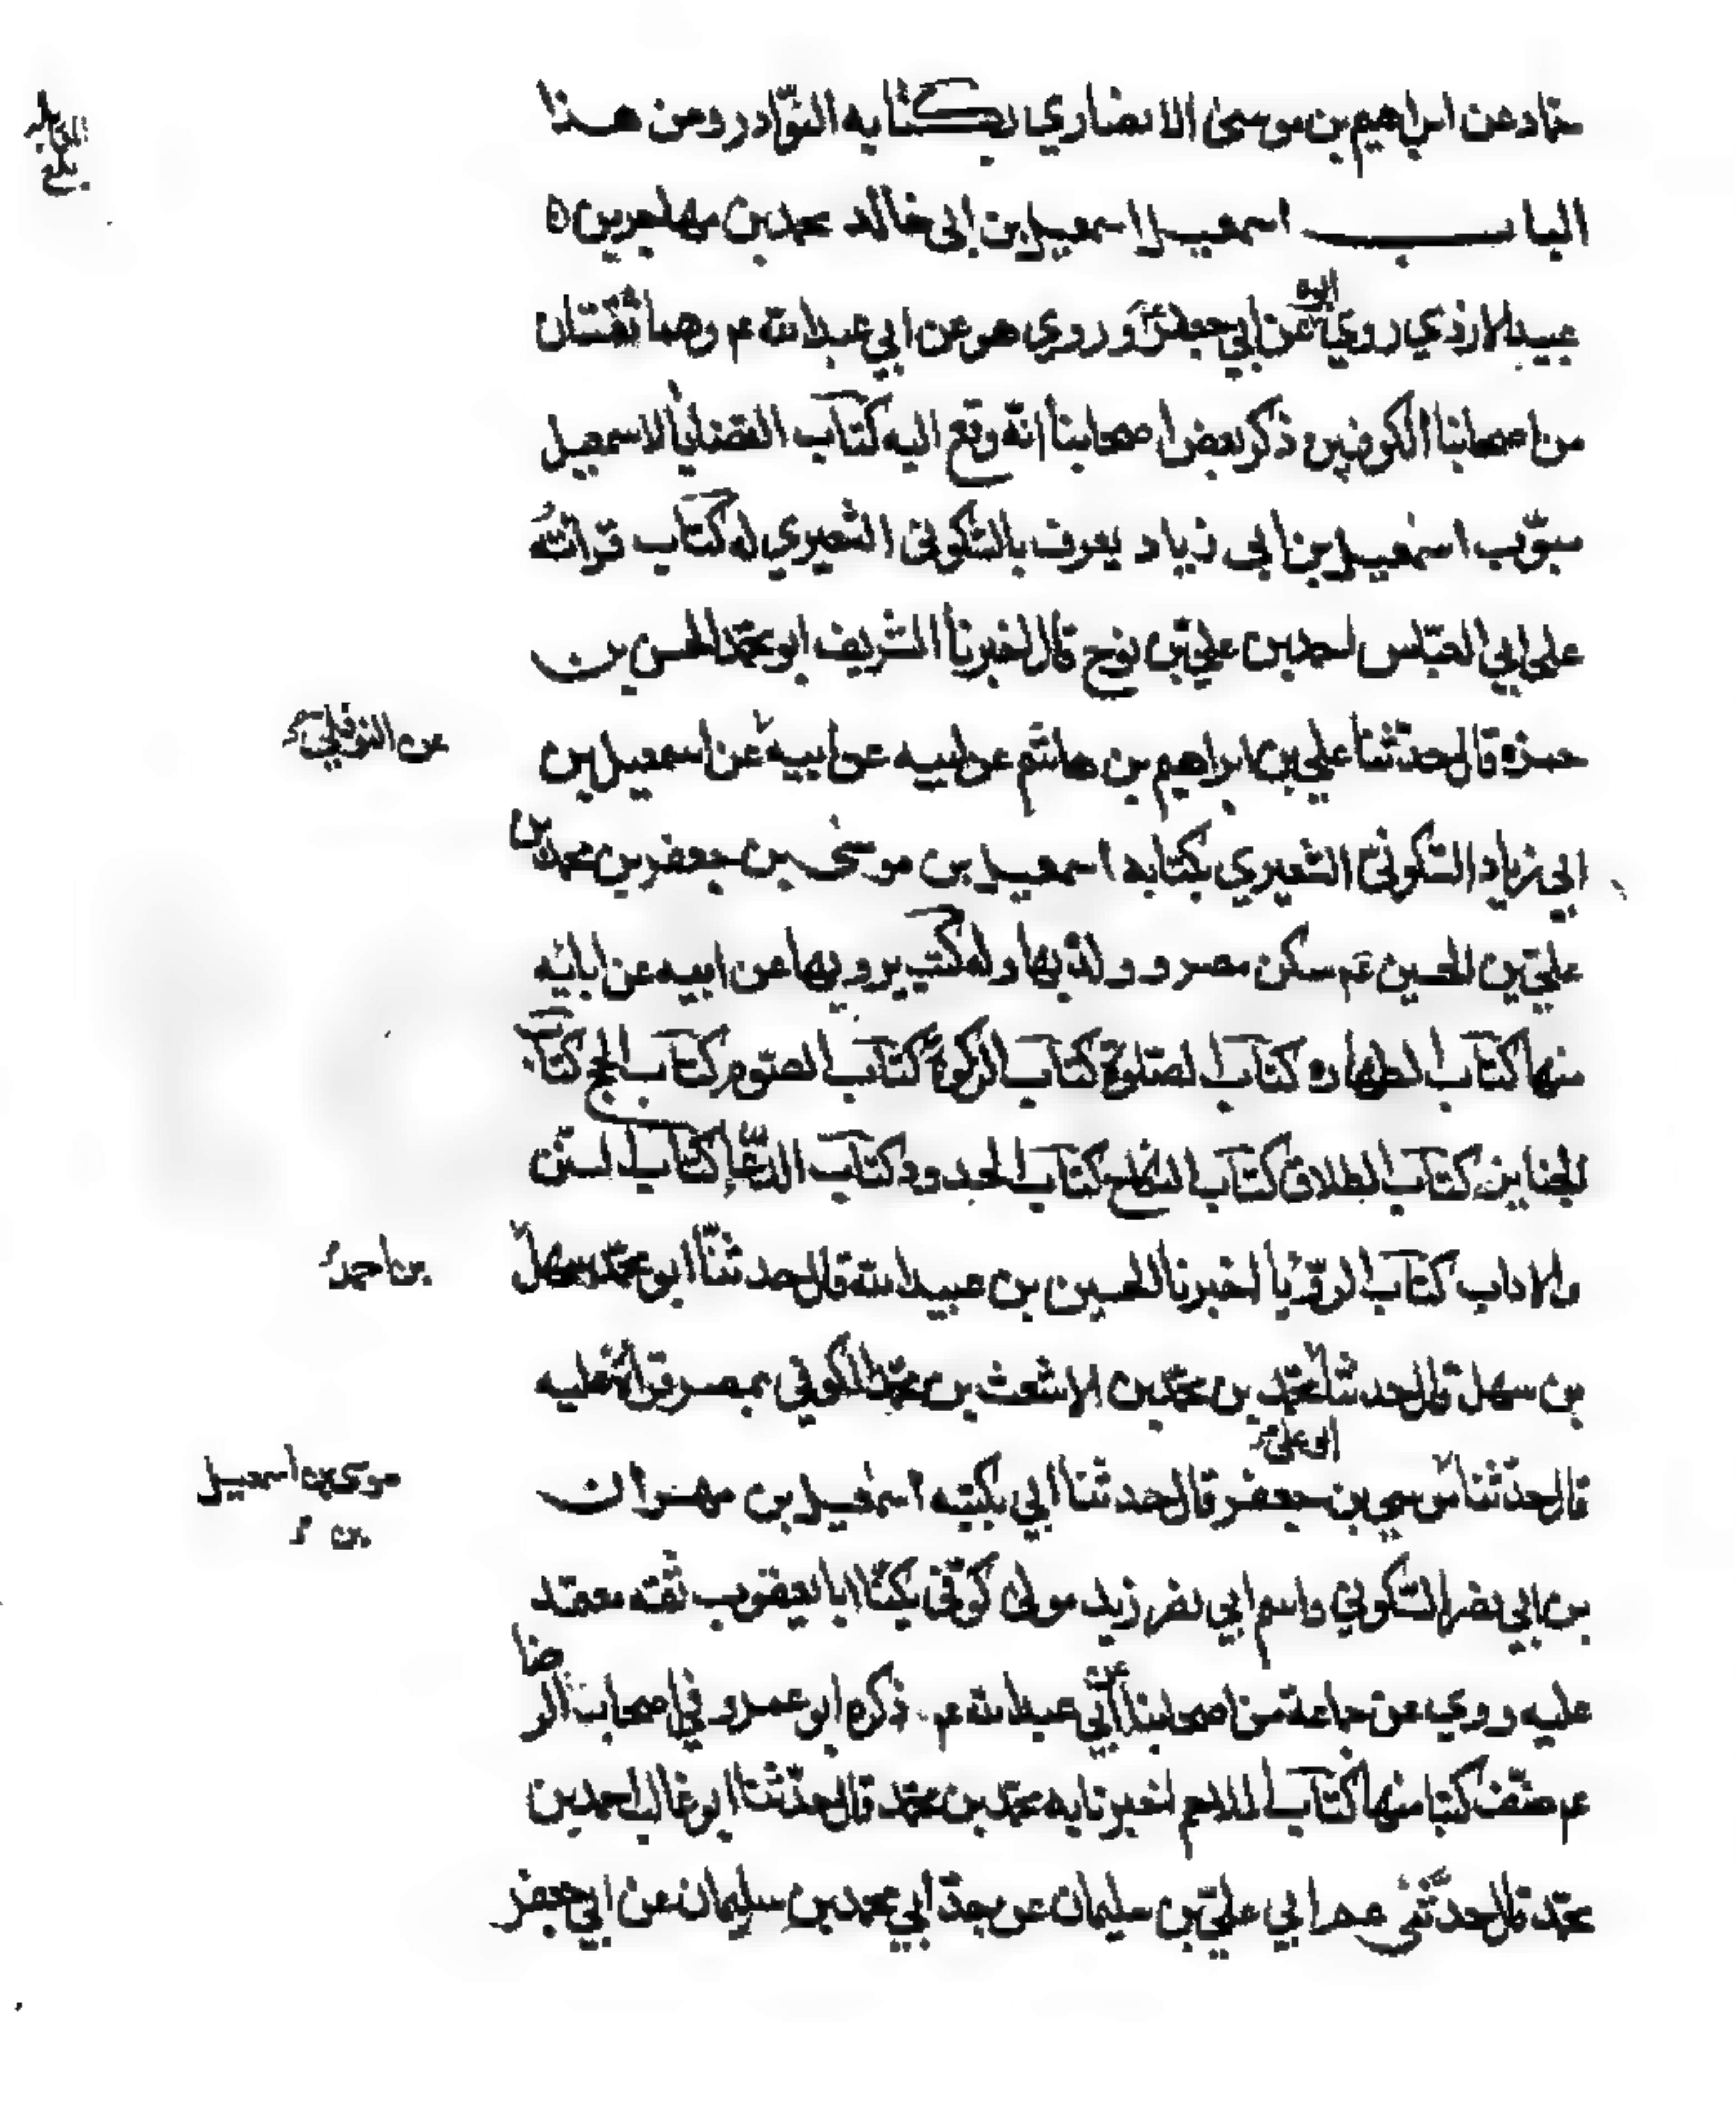 حماد عن ابراهيم بن موسى الانصاري بكتابه النوادر ومن هذا
الباب اسمعيل اسمعيل بن ابى خالد محمد بن مهاجر بن
عبيد الازدي روي ابوه عن ابي جعفر ع وروي هو عن ابي عبدالله عم وهما ثقتان
من اصحابنا الكوفيين ذكر بعض اصحابنا انّه وقع اليه كتاب القضايا لاسمعيل
مبوّب اسمعيل بن ابى زياد يعرف بالسّكونى الشعيري له كتاب قراته
على ابي العبّاس احمد بن علي بن نوح قال اخبرنا الشريف ابو محمّد الحسن بن
حمزة قال حدّثنا علي بن ابراهيم بن هاشم عن ابيه عن ابيه عن اسمعيل بن
عن النوفلي
ابي زياد السّكونىّ الشعيري بكتابه اسمعيل بن موسى بن جعفر بن محمد بن
عليّ بن الحسين عم سكن مصر و ولده بها وله كتب يرويها عن ابيه عن ابائه
منها كتاب الطهارة كتاب الصّلوة كتاب الزكوة كتاب الصّوم كتاب الحج كتاب
الجنايز كتاب الطلاق كتاب النكاح كتاب الحدود كتاب الدّعاء كتاب السنن
والاداب كتاب الرّؤيا اخبرنا الحسين بن عبيدالله قال حدثنا ابو محمّد سهل
بن احمد
بن سهل قال حدثنا محمّد بن محمّد بن الاشعث بن محمّد الكوفي بمصر قراة عليه
ابو علي
قال حدّثنا موسى بن جعفر قال حدثنا ابي بكتبه اسمعيل بن مهران
موسى بن اسمعيل
بن
بن ابي نصر السّكوني واسم ابي نصر زيد مولى كوفّى يكنّا ابا يعقوب ثقه معتمد
عليه روي عن جماعة من اصحابنا عن ابي عبدالله عم ذكره ابو عمرو في اصحاب الرضا
عم صنّف كتبا منها كتاب الملاحم اخبرنا به محمّد بن محمّد قال حدّثنا ابو غالب احمد بن
محمّد قال حدّثنى عم ابي عليّ بن سليمان عن جدّ ابي محمد بن سليمان عن ابي جعفر